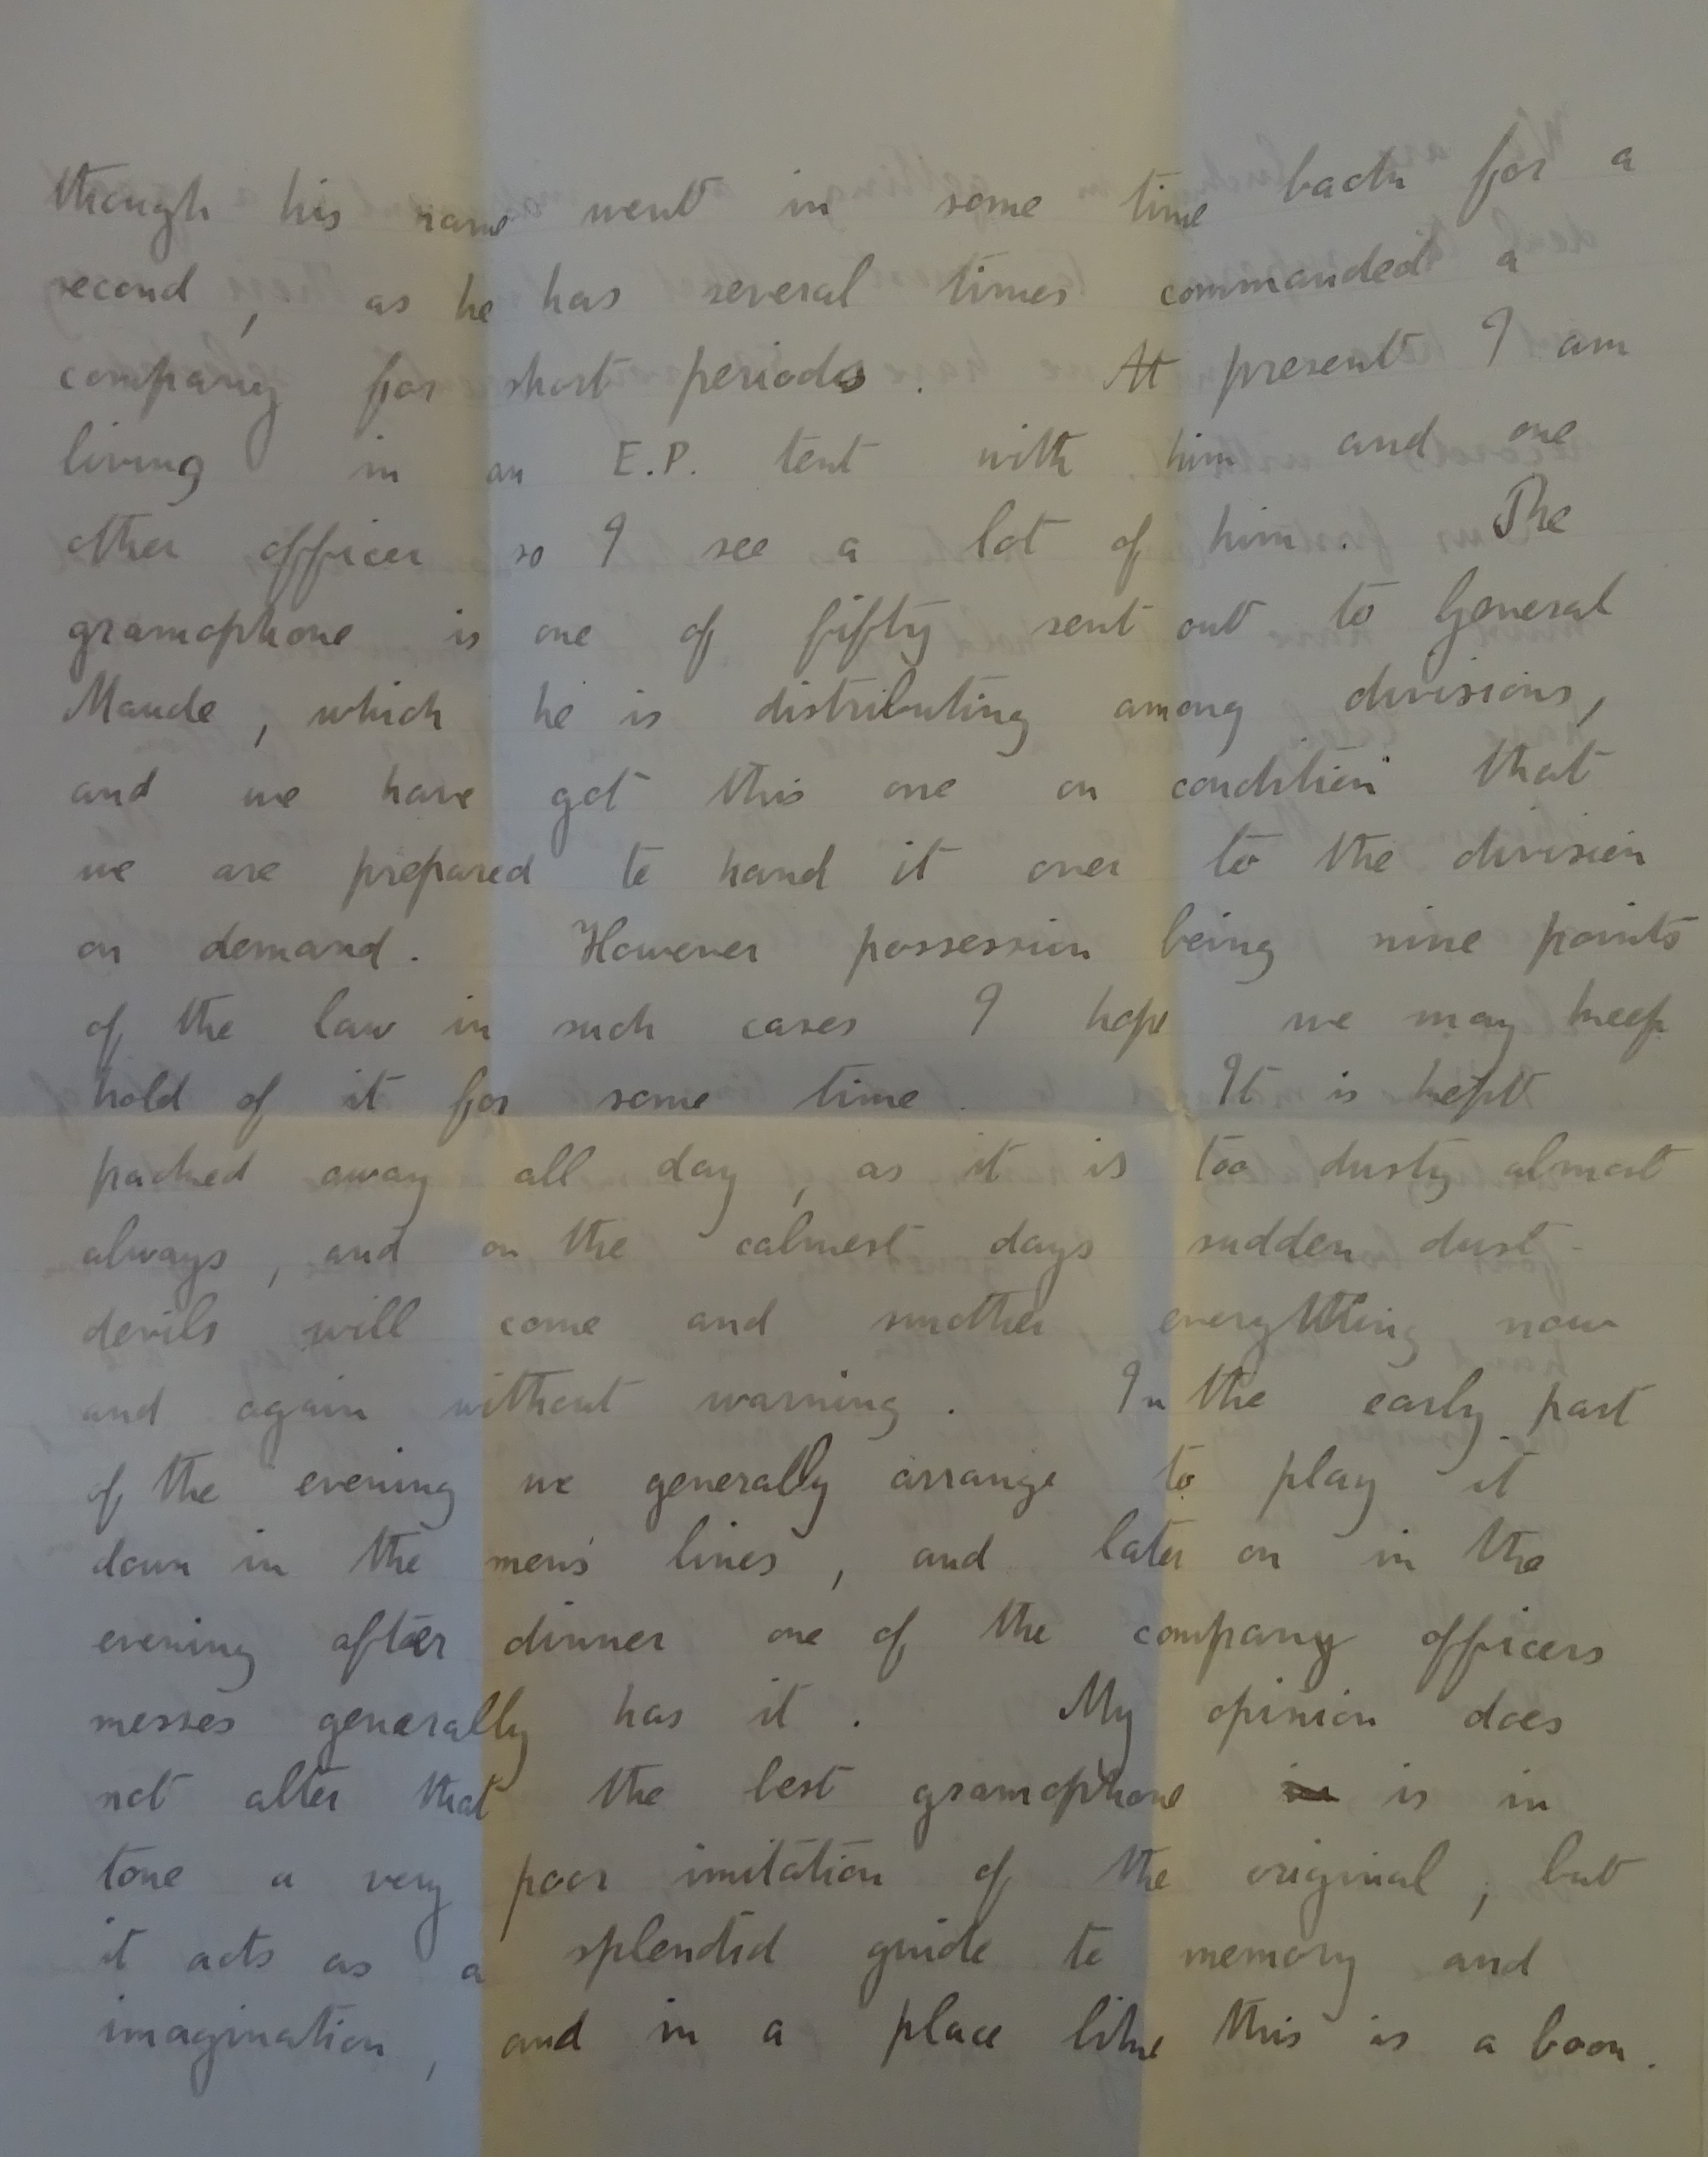 though his name went in some time back for a
second, as he has several times commanded a
company for short periods. At present I am
living in an E.P. tent with him and one
other officer so I see a lot of him. The
gramophone is one of fifty sent out to General
Maude, which he is distributing among divisions,
and we have got this one on condition that
we are prepared to hand it over to the division
on demand. However possession being nine points
of the law in such cases I hope we may keep
hold of it for some time. It is kept
packed away all day, as it is too dusty almost
always, and on the calmest days sudden dust-
devils will come and smother everything now
and again without warning. In the early part
of the evening we generally arrange to play it
down in the men's lines, and later on in the
evening after dinner one of the company officers
messes generally has it. My opinion does
not alter that the best gramophone is in
tone a very poor imitation of the original, but
it acts as a splendid guide to memory and
imagination, and in a place like this is a boon.